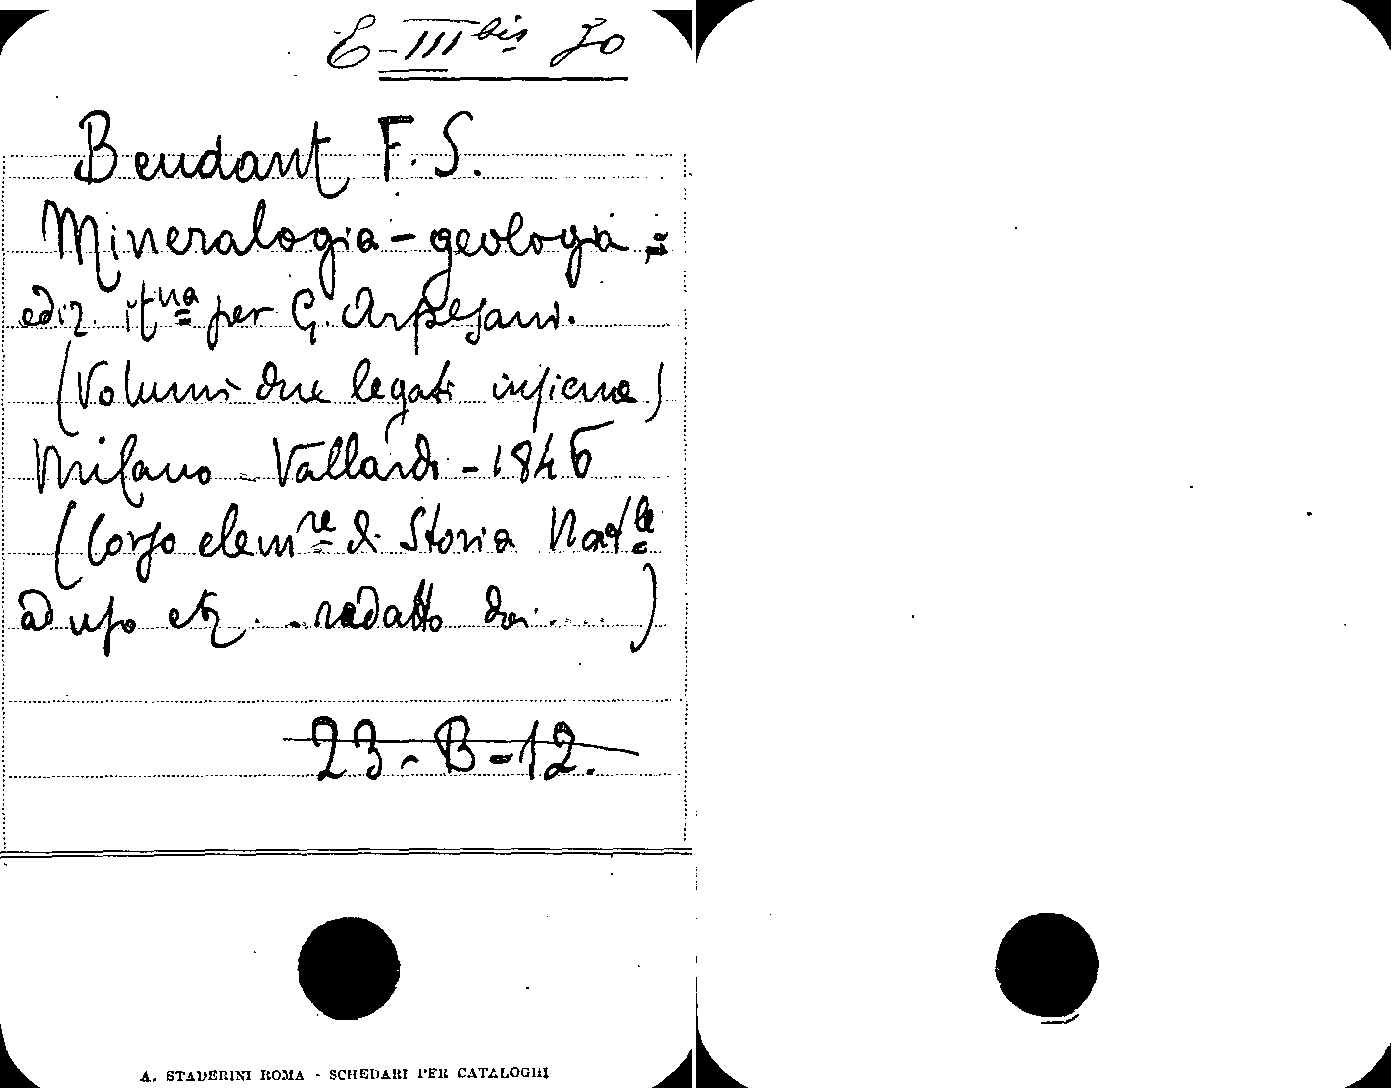 E-III bis 70
Beudant F. S.
Mineralogia - geologia - 1ª
ediz. itna per G. Arpesani.
(Volumi due legati insieme)
Milano - Vallardi - 1846
(Corso elemre di Storia Natle
ad uso etz... redatto dai....)
23 - B - 12.
A. STADERINI ROMA - SCHEDARI PER CATALOGHI